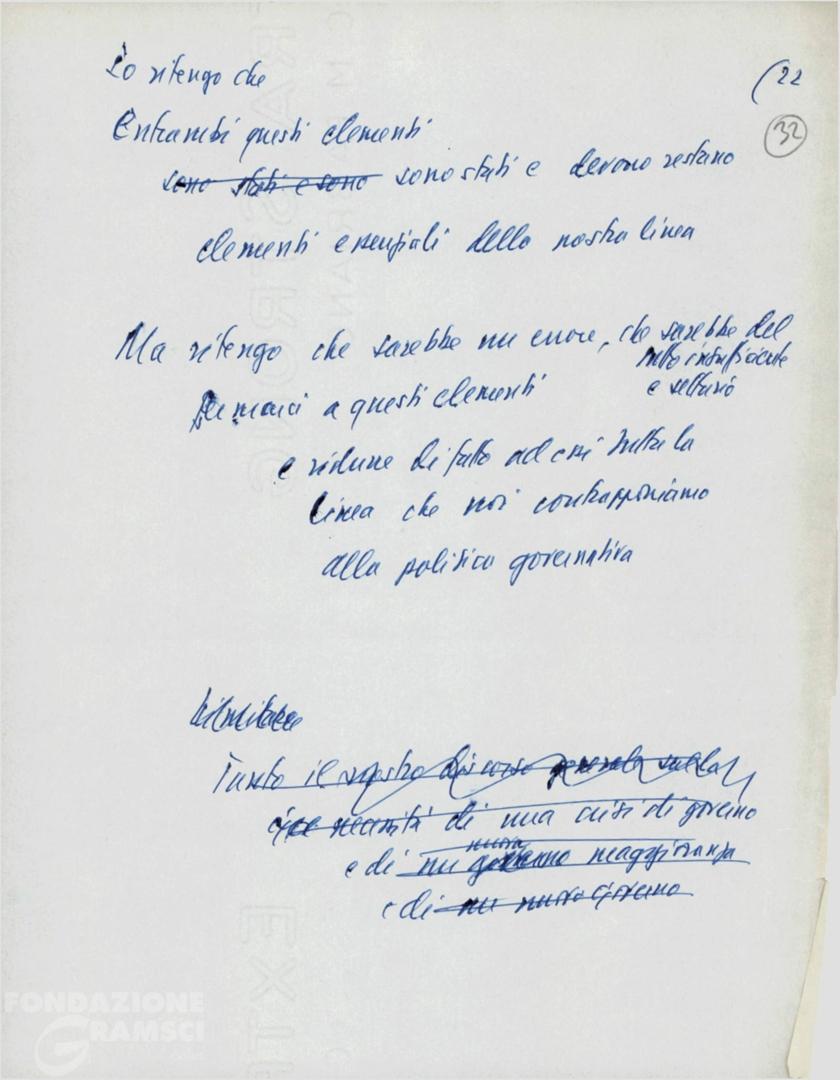 Io ritengo che
(22
32
Entrambi questi elementi
sono stati e sono sono stati e devono restano
elementi essenziali della nostra linea
Ma ritengo che sarebbe un errore, che sarebbe del
tutto insufficiente
e settario
fermarci a questi elementi
e ridurre di fatto ad essi tutta la
linea che noi contrapponiamo
alla politica governativa
Tutto il nostro discorso generale sulla
necessità di una crisi di governo
e di un governo nuova maggioranza
e di un nuovo governo
FONDAZIONE
GRAMSCI